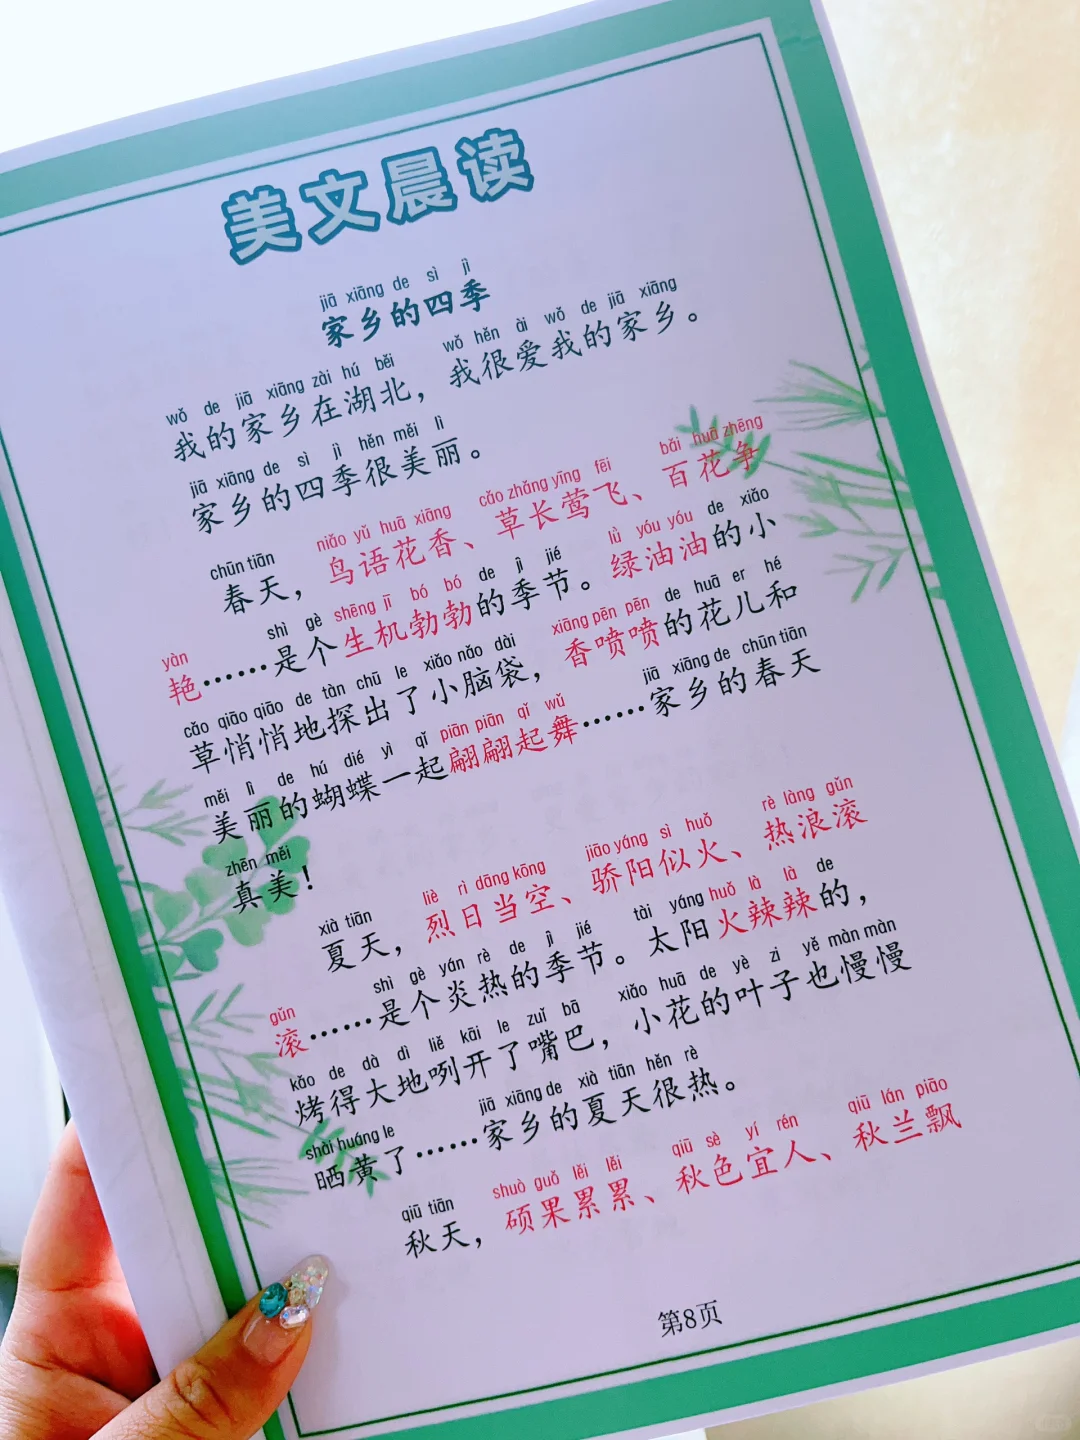 美文晨读
jiā xiāng de sì jì
家乡的四季
wǒ de jiā xiāng zài hú běi wǒ hěn ài wǒ de jiā xiāng
我的家乡在湖北，我很爱我的家乡。
jiā xiāng de sì jì hěn měi lì
家乡的四季很美丽。
chūn tiān niǎo yǔ huā xiāng cǎo zhǎng yīng fēi bǎi huā zhēng
春天，鸟语花香、草长莺飞、百花争
yàn shì gè shēng jī bó bó de jì jié lǜ yóu yóu de xiǎo
艳……是个生机勃勃的季节。绿油油的小
cǎo qiāo qiāo de tàn chū le xiǎo nǎo dài xiāng pēn pēn de huā er hé
草悄悄地探出了小脑袋，香喷喷的花儿和
měi lì de hú dié yì qǐ piān piān qǐ wǔ jiā xiāng de chūn tiān
美丽的蝴蝶一起翩翩起舞……家乡的春天
zhēn měi
真美！
xià tiān liè rì dāng kōng jiāo yáng sì huǒ rè làng gǔn
夏天，烈日当空、骄阳似火、热浪滚
gǔn shì gè yán rè de jì jié tài yáng huǒ là là de
滚……是个炎热的季节。太阳火辣辣的，
kǎo de dà dì liě kāi le zuǐ bā xiǎo huā de yè zi yě màn màn
烤得大地咧开了嘴巴，小花的叶子也慢慢
shài huáng le jiā xiāng de xià tiān hěn rè
晒黄了……家乡的夏天很热。
qiū tiān shuò guǒ lěi lěi qiū sè yí rén qiū lán piāo
秋天，硕果累累、秋色宜人、秋兰飘
第8页